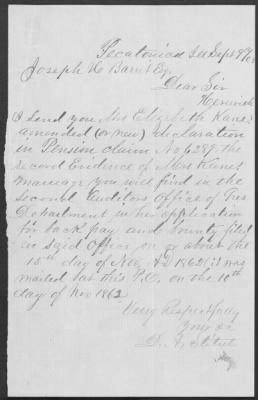 Pecatonica Ill Sept 9th 63
Joseph H Barrit Esq
Dear Sir
Herewith
I Send you Mrs Elizabeth Kane's
amended (or new) declaration
in Pension claim No 6289. the
Second Evidence of Mrs Kanes
marriage you will find in the
Second Auditors Office of Tres
Department in her application
for back pay and bounty filed
in said Office on or about the
15th day of Nov AD 1862 (it was
mailed has this P.O. on the 10th
day of Nov 1862
Very Respectfully
Yours &c
D. A.
Atty